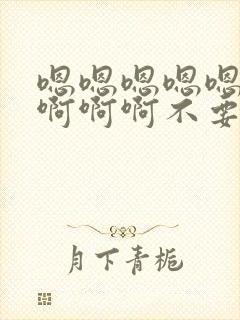 嗯嗯嗯嗯嗯
啊啊啊不要
月下青栀